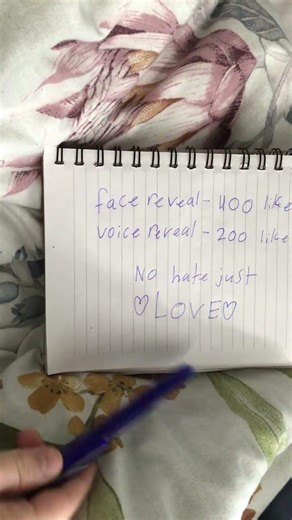 face reveal - 400 like
voice reveal - 200 like
No hate just
♡LOVE♡